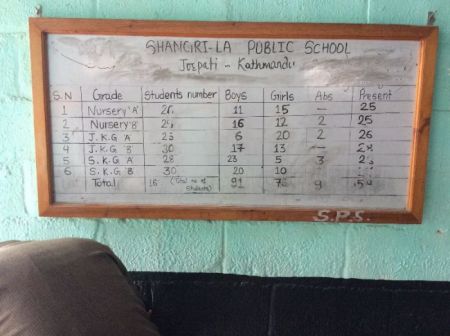 SHANGRI-LA PUBLIC SCHOOL
Jorpati - Kathmandu
S.N Grade Students number Boys Girls Abs Present
1 Nursery 'A' 11 15 25
2 Nursery 'B' 16 12 2 25
3 J.K.G A 6 20 2 26
4 J.K.G B 30 17 13 -
5 S.K.G A 28 23 5 3
6 S.K.G B 30 20 10
Total (Total no of Students) 91 9
S.P.S.